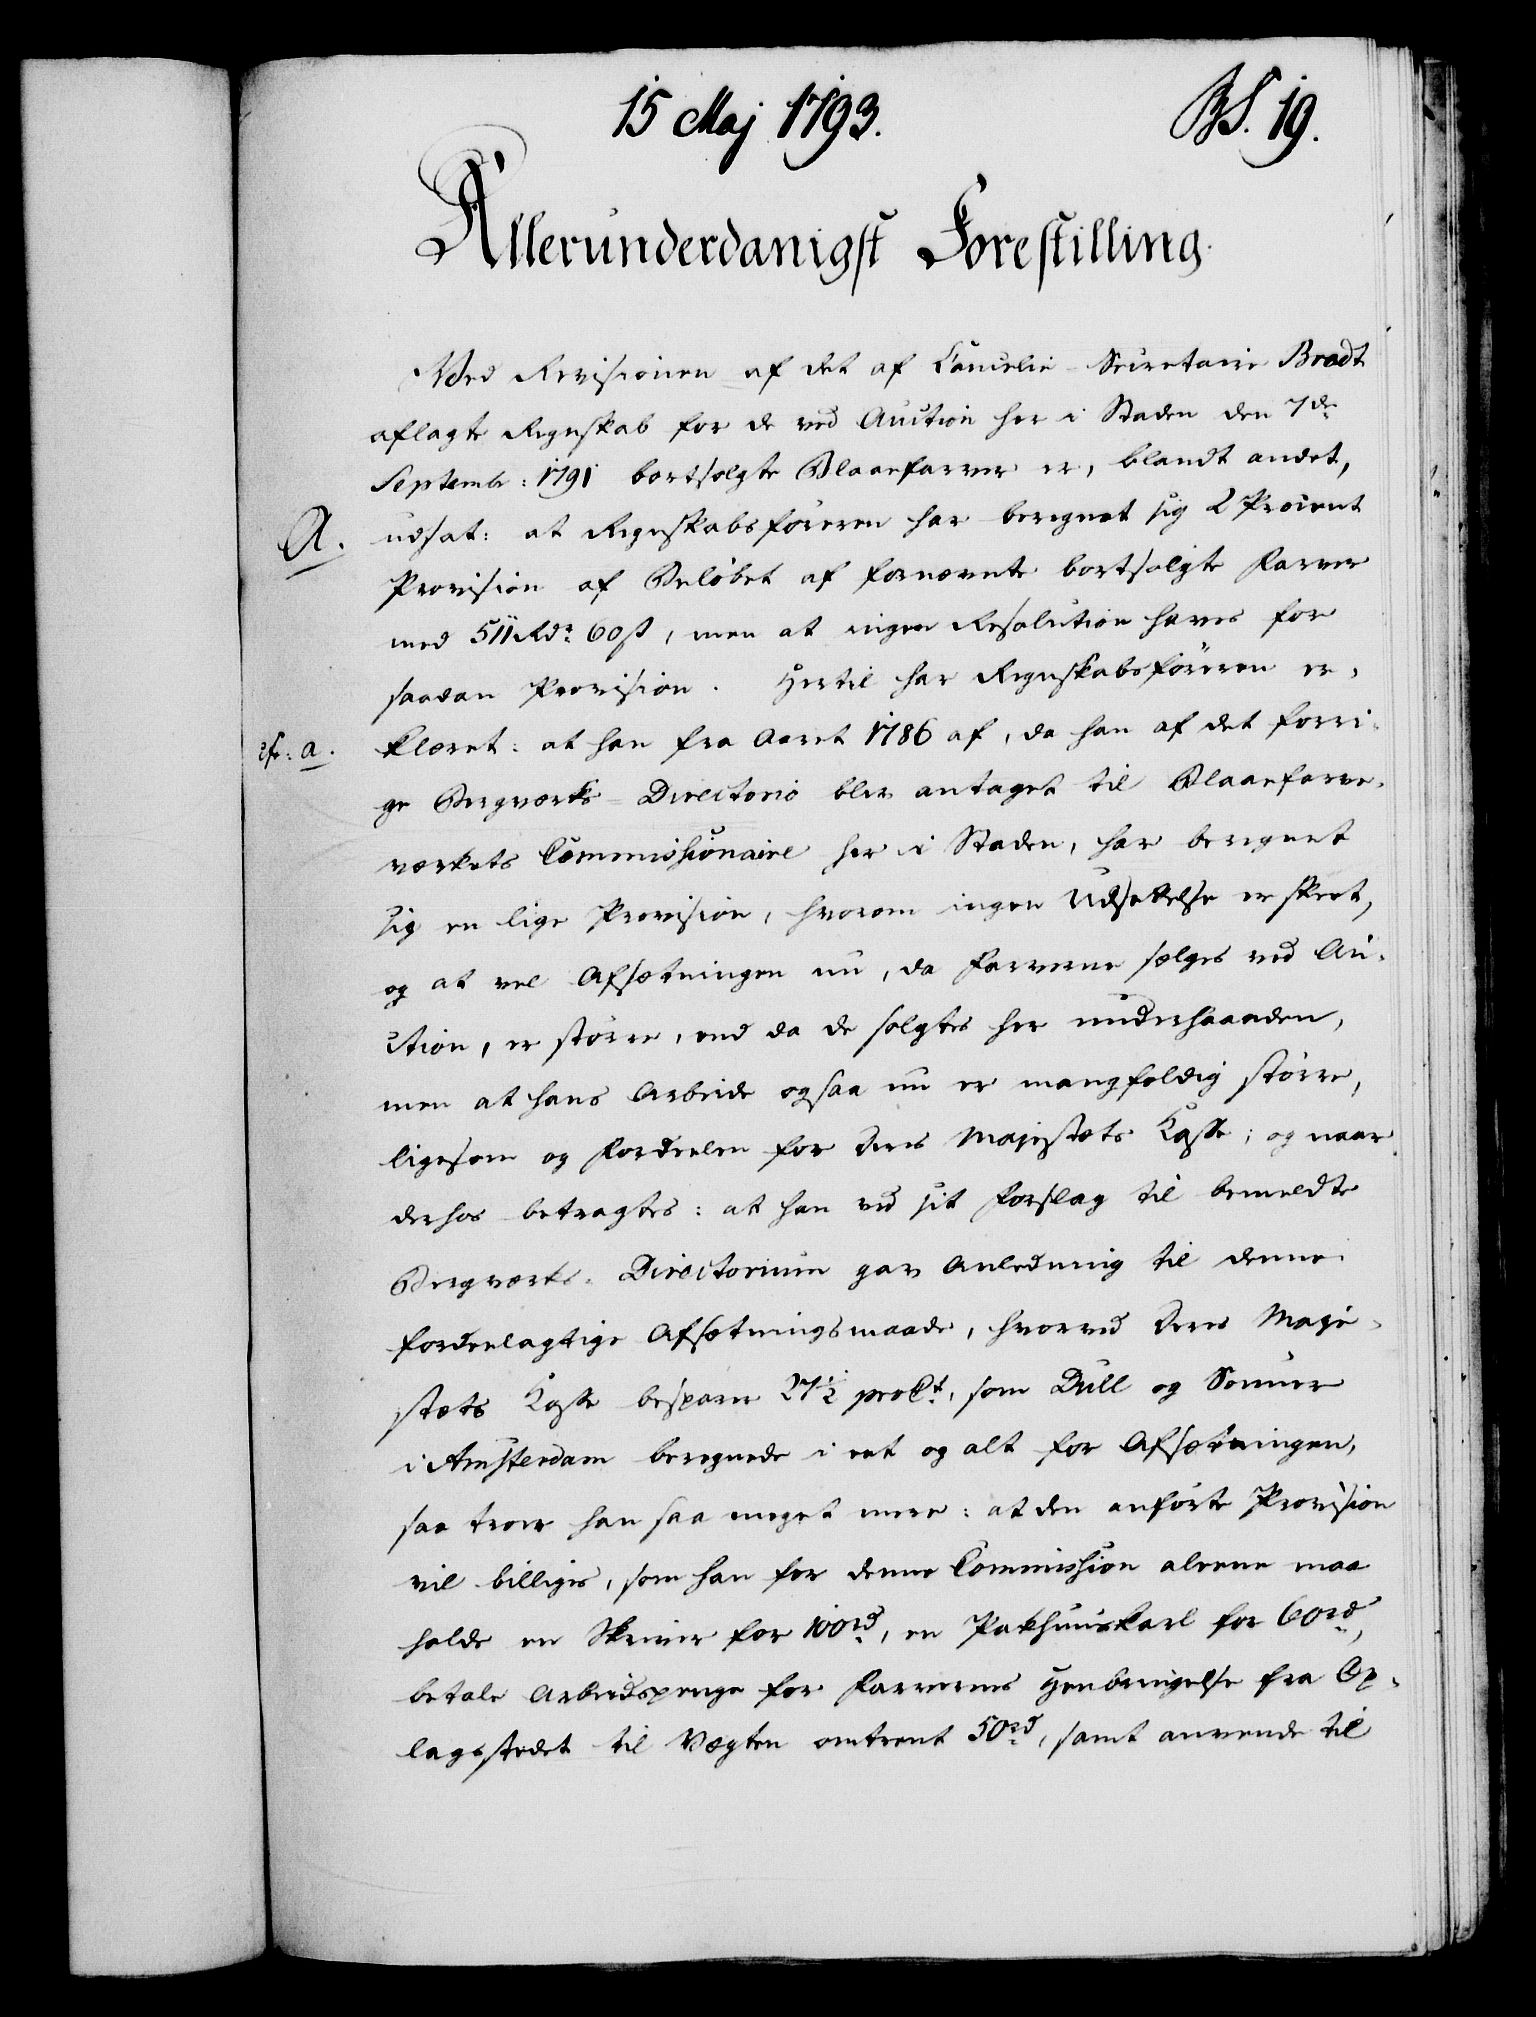 15 Maj 1793.
BS. 19.
Allerunderdanigst Forestilling.
Ved Revisionen af det af Cancelie-Secretaire Bradt
aflagte Regnskab for de ved Auction her i Staden den 7de
Septembr: 1791 bortsolgte Blaaefarver er, blandt andet,
A.
udsat: at Regnskabsføreren har beregnet sig 2 Procent
Provision af Beløbet af fornævnte bortsolgte Farver
med 511 Rdr 60 s, men at ingen Resolution haves for
saadan Provision. Hertil har Regnskabsføreren er-
cfr: a.
klæret: at han fra Aaret 1786 af, da han af det forri-
ge Bergværks-Directorio blev antaget til Blaaefarve-
værkets Commissionaire her i Staden, har beregnet
sig en lige Provision, hvorom ingen Udsættelse er skeet,
og at vel Afsætningen nu, da Farverne sælges ved Au-
ction, er større, end da de solgtes her underhaanden,
men at hans Arbeide ogsaa nu er mangfoldig større,
ligesom og Fordeelen for Deres Majestæts Kasse; og naar
derhos betragtes: at han ved sit Forslag til bemeldte
Bergværks-Directorium gav Anledning til denne
fordeelagtige Afsætningsmaade, hvorved Deres Maje-
stæts Kasse besparer 27½ proCt, som Dull og Sønner
i Amsterdam beregnede i eet og alt for Afsætningen,
saa troer han saa meget mere: at den anførte Provision
vil billiges, som han for denne Commission aleene maa
holde en Skriver for 100 rd, en Pakhuuskarl for 60 rd,
betale Arbeidspenge for Farvernes Henbringelse fra Op-
lagsstedet til Vægten omtrent 50 rd, samt anvende til